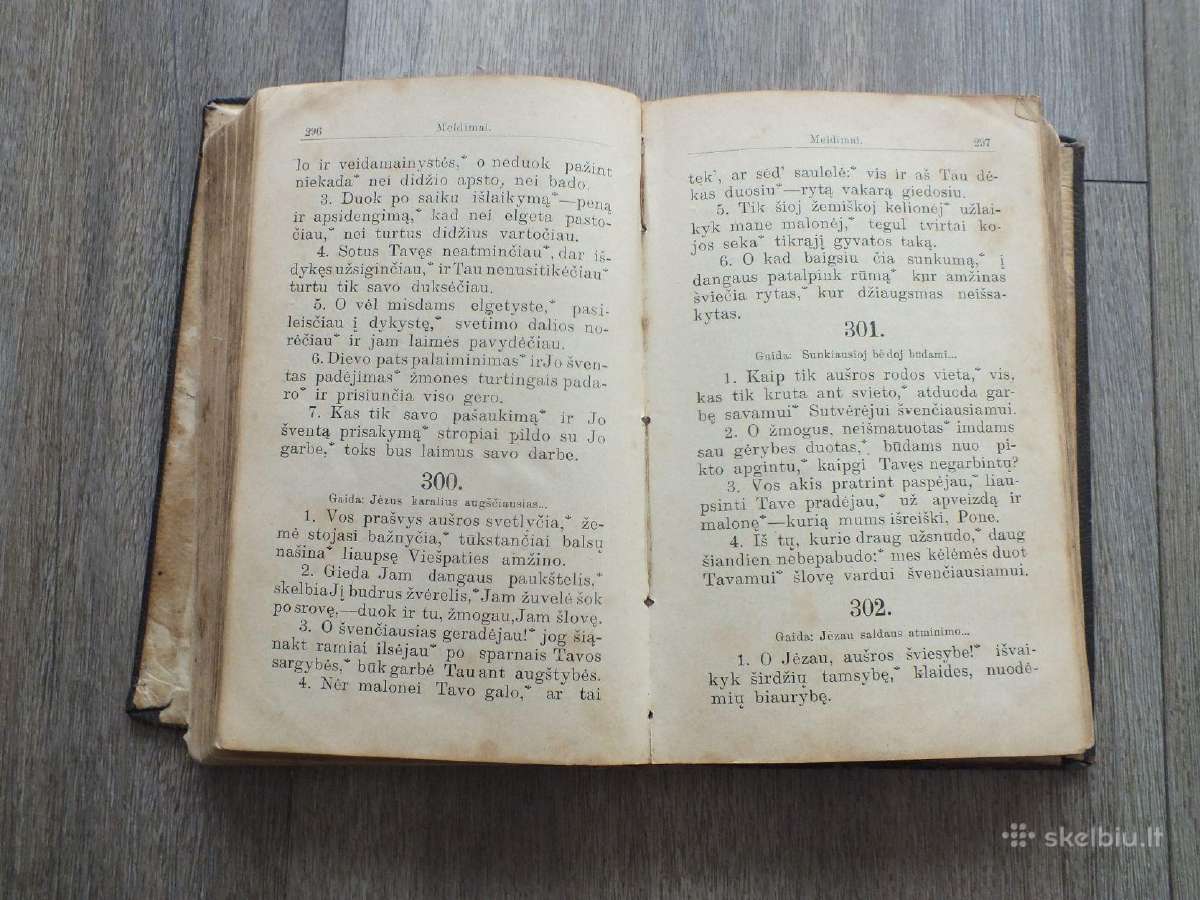 296 Meldimai.
lo ir veidamainystės,* o neduok pažint
niekada* nei didžio apsto, nei bado.
3. Duok po saiku išlaikymą*—peną
ir apsidengimą,* kad nei elgeta pasto-
čiau,* nei turtus didžius vartočiau.
4. Sotus Tavęs neatminčiau*, dar iš-
dykęs užsiginčiau,* ir Tau nenusitikėčiau*
turtu tik savo duksėčiau.
5. O vėl misdams elgetyste,* pasi-
leisčiau į dykystę,* svetimo dalios no-
rėčiau* ir jam laimės pavydėčiau.
6. Dievo pats palaiminimas* ir Jo šven-
tas padėjimas* žmones turtingais pada-
ro* ir prisiunčia viso gero.
7. Kas tik savo pašaukimą* ir Jo
šventą prisakymą* stropiai pildo su Jo
garbe,* toks bus laimus savo darbe.
300.
Gaida: Jėzus karalius augščiausias...
1. Vos prašvys aušros svetlyčia,* že-
mė stojasi bažnyčia,* tūkstančiai balsų
našina* liaupsę Viešpaties amžino.
2. Gieda Jam dangaus paukštelis,*
skelbia Jį budrus žvėrelis,* Jam žuvelė šok
po srovę,—duok ir tu, žmogau, Jam šlovę.
3. O švenčiausias geradėjau!* jog šią-
nakt ramiai ilsėjau* po sparnais Tavos
sargybės,* būk garbė Tau ant augštybės.
4. Nėr malonei Tavo galo,* ar tai
Meldimai. 297
tęk’, ar sėd’ saulelė:* vis ir aš Tau dė-
kas duosiu*—rytą vakarą giedosiu.
5. Tik šioj žemiškoj kelionėj* užlai-
kyk mane malonėj,* tegul tvirtai ko-
jos seka* tikrąjį gyvatos taką.
6. O kad baigsiu čia sunkumą,* į
dangaus patalpink rūmą* kur amžinas
šviečia rytas,* kur džiaugsmas neišsa-
kytas.
301.
Gaida: Sunkiausioj bėdoj budami...
1. Kaip tik aušros rodos vieta,* vis,
kas tik kruta ant svieto,* atduoda gar-
bę savamui* Sutvėrėjui švenčiausiamui.
2. O žmogus, neišmatuotas* imdams
sau gėrybes duotas,* būdams nuo pi-
kto apgintu,* kaipgi Tavęs negarbintų?
3. Vos akis pratrint paspėjau,* liau-
psinti Tave pradėjau,* už apveizdą ir
malonę*—kurią mums išreiški, Pone.
4. Iš tų, kurie draug užsnūdo,* daug
šiandien nebepabudo:* mes kėlėmės duot
Tavamui* šlovę vardui švenčiausiamui.
302.
Gaida: Jėzau saldaus atminimo...
1. O Jėzau, aušros šviesybe!* išvai-
kyk širdžių tamsybę,* klaides, nuodė-
mių biaurybę.
skelbiu.lt